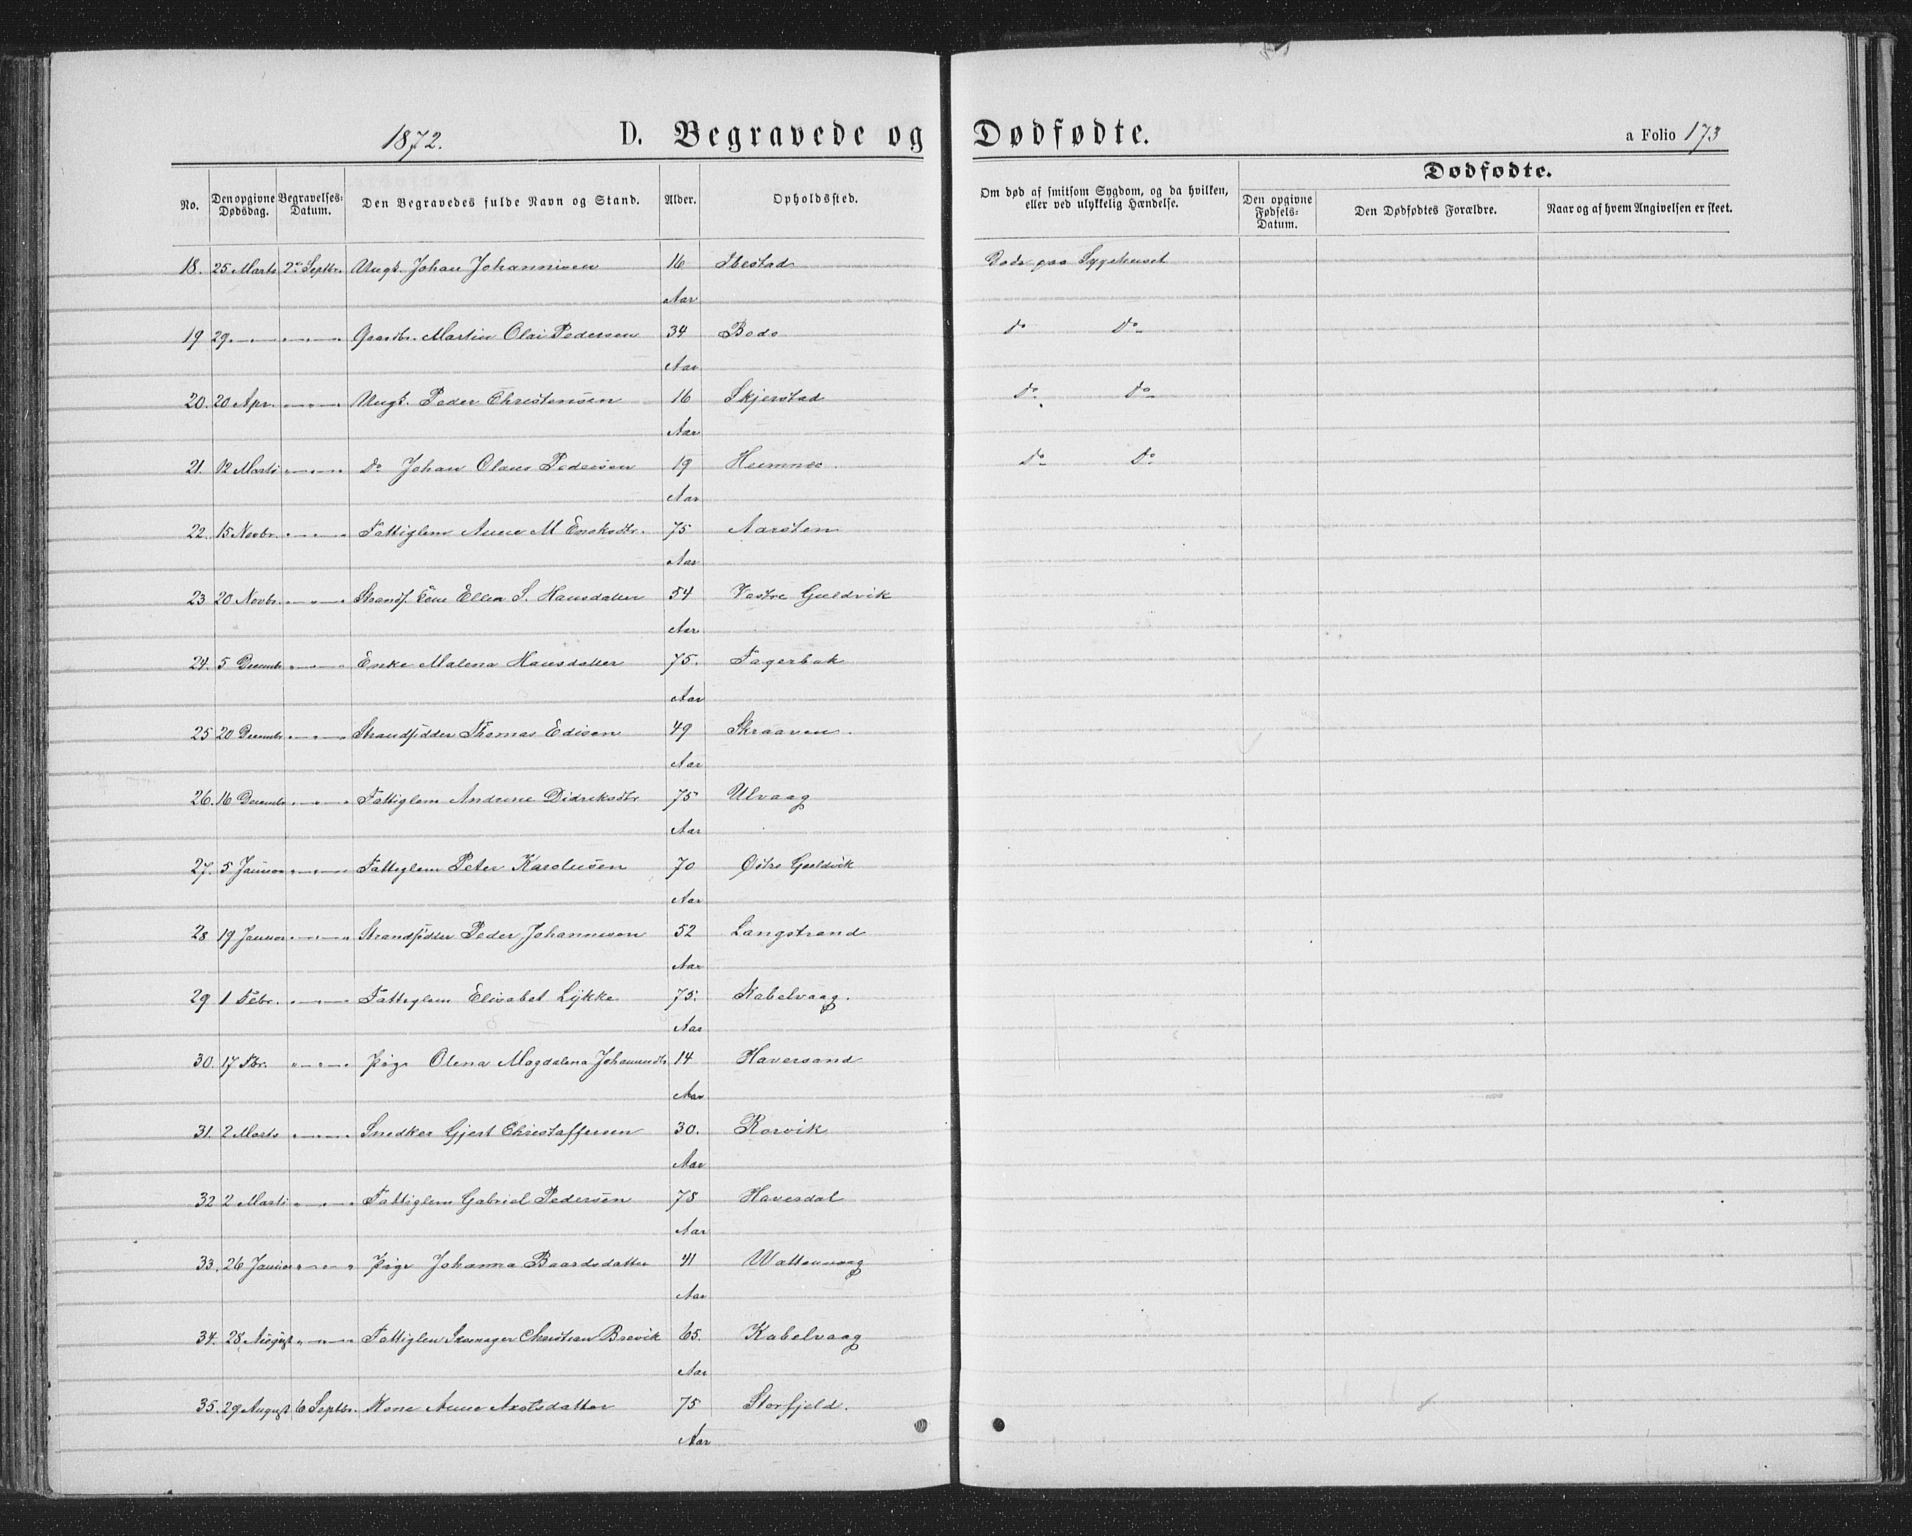 1872. D. Begravede og Dødfødte. a Folio 173
Dødfødte.
No. Den opgivne Dødsdag. Begravelses-Datum. Den Begravedes fulde Navn og Stand. Alder. Opholdssted. Om død af smitsom Sygdom, og da hvilken, eller ved ulykkelig Hændelse. Den opgivne Fødsels-Datum. Den Dødfødtes Forældre. Naar og af hvem Angivelsen er skeet.
18. 25 Marts 2 Septbr. Ungk. Johan Johannisen 16 Aar Ibestad Døde paa Sygehuset
19 29 Gaardbr. Martin Olai Pedersen 34 Aar Bodø do do
20. 20 Apr. Ungk. Peder Christensen 16 Aar Skjerstad do do
21. 12 Marts do Johan Olaus Pedersen 19 Aar Hemnæs do do
22. 15 Novbr. Fattiglem Anne M 75 Aar Aarsten
23 20 Novbr. Strands. Ellen S. Hansdatter 54 Aar Vestre Gjeldvik
24. 5 Decembr Enke Malena Hansdatter 75. Aar Fagerbak
25 20 Decembr Strandsidder Thomas Edisen 49 Aar Skraaven.
26. 16 Decembr Fattiglem Andrine Didriksdtr 75 Aar Ulvaag
27. 5 Januar Fattiglem Peter Karolusen 70 Aar Østre Gjeldvik
28 19 Januar Strandsidder Peder Johannesen 52 Aar Langstrand
29 1 Febr. Fattiglem Elisabet Lykke 75. Aar Kabelvaag.
30. 17 Fbr. Pige Olena Magdalena 14 Aar Haversand
31. 2 Marts Snedker Gjert Christaffersen 30. Aar Rørvik
32 2 Marts Fattiglem Gabriel Pedersen 78 Aar Havesdal
33. 26 Januar Pige Johanna Baardsdatter 41 Aar
34. 28 August Fattiglem Skomager Christian Brevik 65. Aar Kabelvaag
35. 29 August 6 Septbr. Kone Anne 75 Aar Storfjeld.